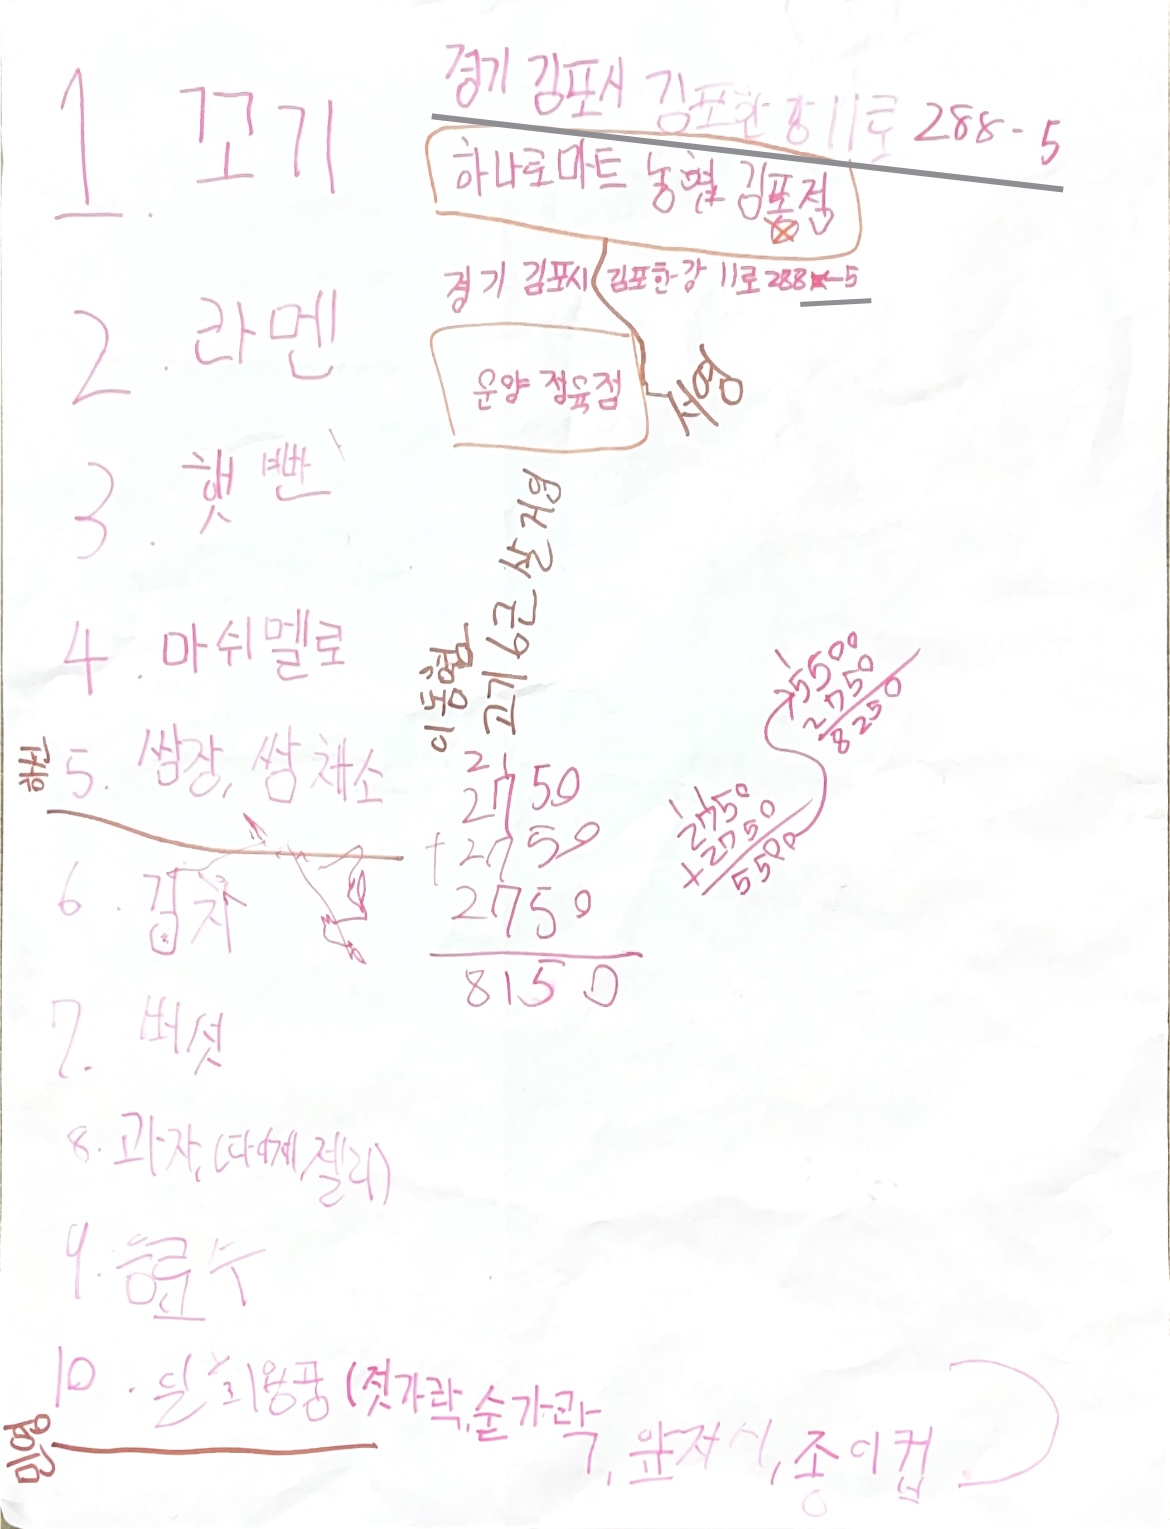 1. 꼬기
2. 라멘
3. 햇빤
4. 마쉬멜로
하진
5. 쌈장, 쌈채소
6. 감자
7. 버섯
8. 과자, (다이제, 젤리)
9. 음료수
10. 일회용품 (젓가락, 숟가락, 접시, 종이컵)
민영
경기 김포시 김포한강11로 288-5
하나로마트 농협 김포점
경기 김포시 김포한강 11로 288-5
운양 정육점
서영
이동혐
고기 6근 살
21
2750
+2750
2750
8150
11
2750
+2750
5500
1
5500
2750
8250